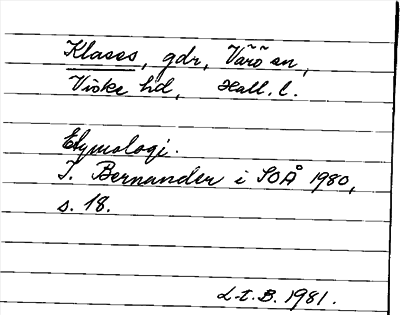 Klases, gdr, Värö sn,
Viske hd, Hall. l.
Etymologi.
I. Bernander i SOÅ 1980,
s. 18.
L-t. B. 1981.